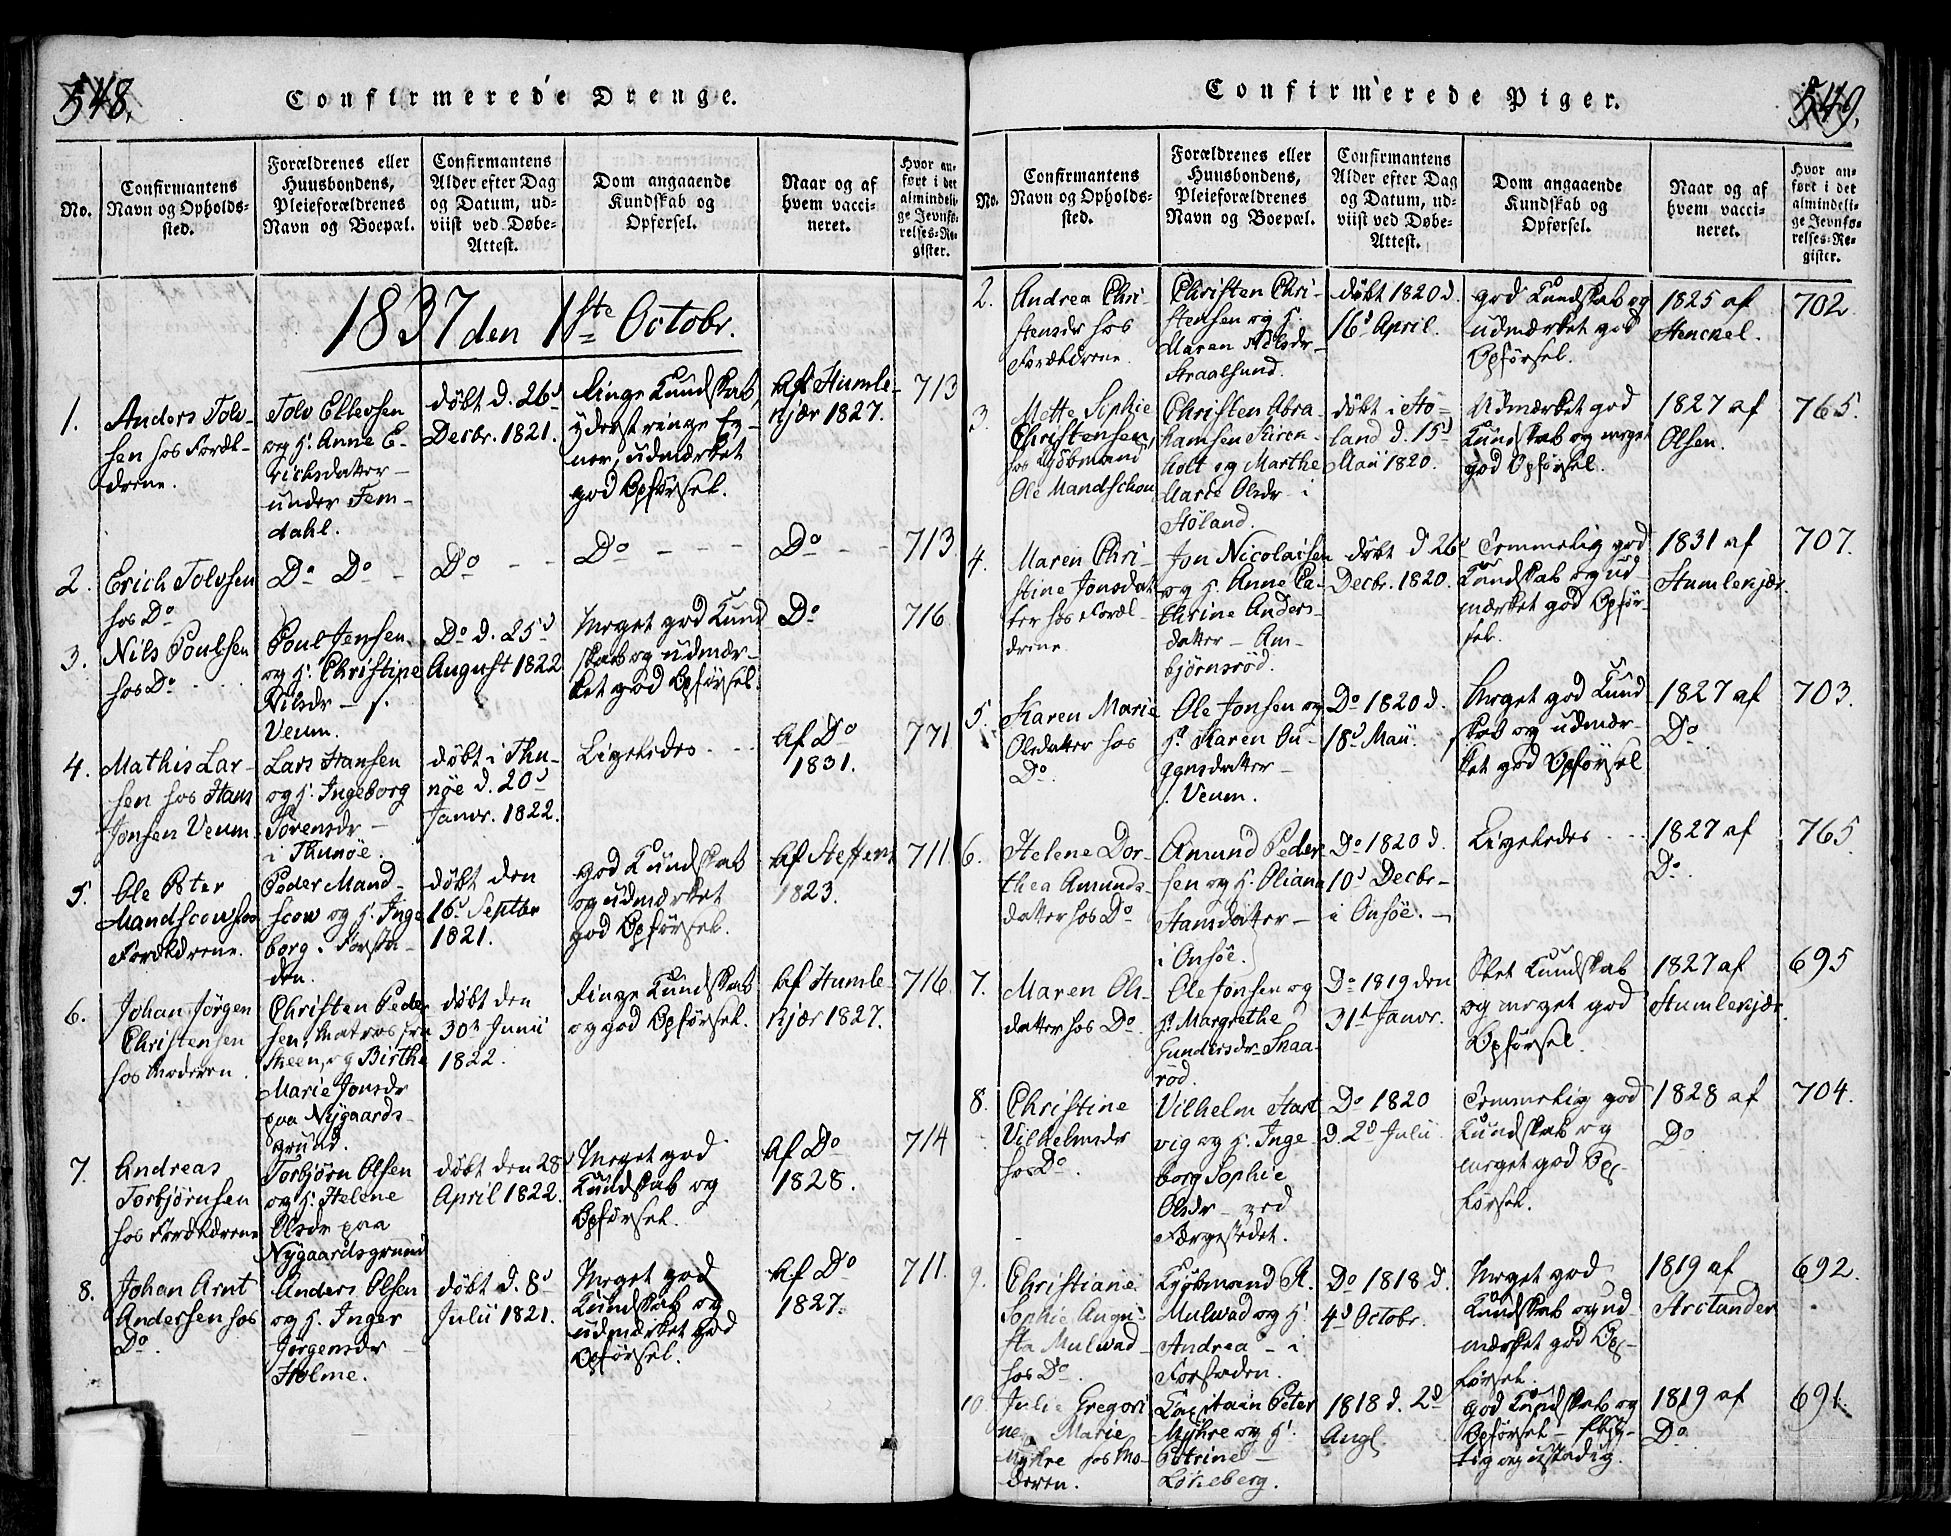 548.
Confirmerede Drenge.
No.
Confirmantens
Navn og Opholds-
sted.
Forældrenes eller
Huusbondens,
Pleieforældrenes
Navn og Boepæl.
Confirmantens
Alder efter Dag
og Datum, ud-
viist ved Døbe-
Attest.
Dom angaaende
Kundskab og
Opførsel.
Naar og af
hvem vacci-
neret.
Hvor an-
ført i det
almindeli-
ge Jevnfø-
relses-Re-
gister.
1837 den 1ste Octobr.
1.
Anders Tolv-
sen hos Foræl-
drene.
Tolv Ellevsen
og H. Anne E-
richsdatter -
under Tem-
dahl.
døbt d. 26d
Decbr. 1821.
Ringe Kundskab,
yderst ringe Ev-
ner, udmærket
god Opførsel.
Af Humle-
kjær 1827.
713
2.
Erich Tolvsen
hos Do
Do Do -
Do - -
Do - - -
Do - -
713
3.
Nils Poulsen
hos Do
Poul Jensen
og H. Christine
Nilsdr -
Veum.
Do d. 25d
August 1822
Meget god Kund
skab og udmær-
ket god Opførsel.
Do
716
4.
Mathis Lar-
sen hos Hans
Jonsen Veum
Lars Hansen
og H. Ingeborg
Sørensdr -
i Thunøe.
døbt i Thu-
nøe d. 20d
Janvr. 1822.
Ligeledes - -
Af Do
1831.
771
5.
Ole Peter
Mandscow hos
Forældrene.
Peder Mand-
scow og H. Inge
borg i Forsta-
den.
døbt den
16d Septbr
1821.
god Kundskab
og udmærket
god Opførsel.
Af Steffens
1823.
711.
6.
Johan Jörgen
Christensen
hos Moderen.
Christen Peder
sen, Matros fra
Skeen, og Birthe
Marie Jonsdr
paa Nygaards-
grund.
døbt den
30te Junii
1822.
Ringe Kundskab
og god Opførsel.
Af Humle
kjær 1827.
716.
7.
Andreas
Torbjørnsen
hos Forældrene
Torbjørn Olsen
og H. Helene
Olsdr paa
Nygaardsgrund
døbt den 28d
April 1822.
Meget god
Kundskab og
Opførsel.
Af Do
1828.
714
8.
Johan Arnt
Andersen hos
Do.
Anders Olsen
og H. Inger
Jørgensdr -
Holme.
døbt d. 8d
Julii 1821.
Meget god
Kundskab og
udmærket god
Opførsel.
Af Do
1827.
711.
549.
Confirmerede Piger.
No.
Confirmantens
Navn og Opholds-
sted.
Forældrenes eller
Huusbondens,
Pleieforældrenes
Navn og Boepæl.
Confirmantens
Alder efter Dag
og Datum, ud-
viist ved Døbe-
Attest.
Dom angaaende
Kundskab og
Opførsel.
Naar og af
hvem vacci-
neret.
Hvor an-
ført i det
almindeli-
ge Jevnfø-
relses-Re-
gister.
2.
Andrea Chri
stensdr hos
Forældrene.
Christen Chri-
stensen og H.
Maren Nilsdr -
Straalsund.
døbt 1820 d.
16d April.
god Kundskab og
udmærket god
Opførsel.
1825 af
Stenckel.
702.
3.
Mette Sophie
Christensen,
hos Kjøbmand
Ole Mandschou
Christen Abra-
hamsen Kiren-
holt og Marthe
Marie Olsdr i
Høland.
døbt i Hø-
land d. 15d
Maii 1820.
Udmærket god
Kundskab og meget
god Opførsel.
1827 af
Olsen.
765.
4.
Maren Chri-
stine Jonsdat-
ter hos Foræl-
drene.
Jon Nicolaisen
og H. Anne Ca-
thrine Anders-
datter - Am-
bjørnsrød.
døbt d 26d
Decbr. 1820.
Temmelig god
Kundskab og ud-
mærket god Opfør-
sel.
1831 af
Humlekjær.
707.
5.
Karen Marie
Olsdatter hos
Do.
Ole Jonsen og
H. Karen Au-
gensdatter -
i Veum.
Do 1820 d.
18d Maii.
Meget god Kund
skab og udmær-
ket god Opførsel
1827 af
Do
703.
6.
Helene Dor-
thea Amunds-
datter hos Do
Amund Peder
sen og H. Oliana
Hansdatter -
i Onsöe.
Do 1820 d.
10d Decbr -
i Onsöe. -
Ligeledes - -
1827 af
Do.
765.
7.
Maren Ols-
datter hos Do.
Ole Jonsen og
H. Margrethe
Gundersdr - Traa-
röd.
Do 1819 den
31d Janvr.
Slet Kundskab
og meget god
Opførsel.
1827 af
Humlekjær.
695
8.
Christine
Vilhelmsdr
hos Do.
Vilhelm Hart
vig og H. Inge-
borg Sophie
Olsdr - ved
Færgestedet.
Do 1820
d. 2d Julii
Temmelig god
Kundskab og
meget god Op-
førsel.
1828 af
Do
704.
9.
Christiane
Sophie Augu-
sta Mulvad
hos Do.
Kjøbmand A.
Mulvad og H.
Andrea - i
Forstaden.
Do 1818 d.
4d Octobr.
Meget god
Kundskab og ud
mærket god Op-
førsel.
1819 af
Arctander
692.
10.
Julie Gregori
ne Marie
Myhre hos Mo-
deren.
Capitain Peter
Myhre og H.
Petrine -
Løkeberg.
1818 d. 2d
Augt.
god Kundskab og
Opførsel - flyg-
tig og ustadig.
1819 af
Do.
691.